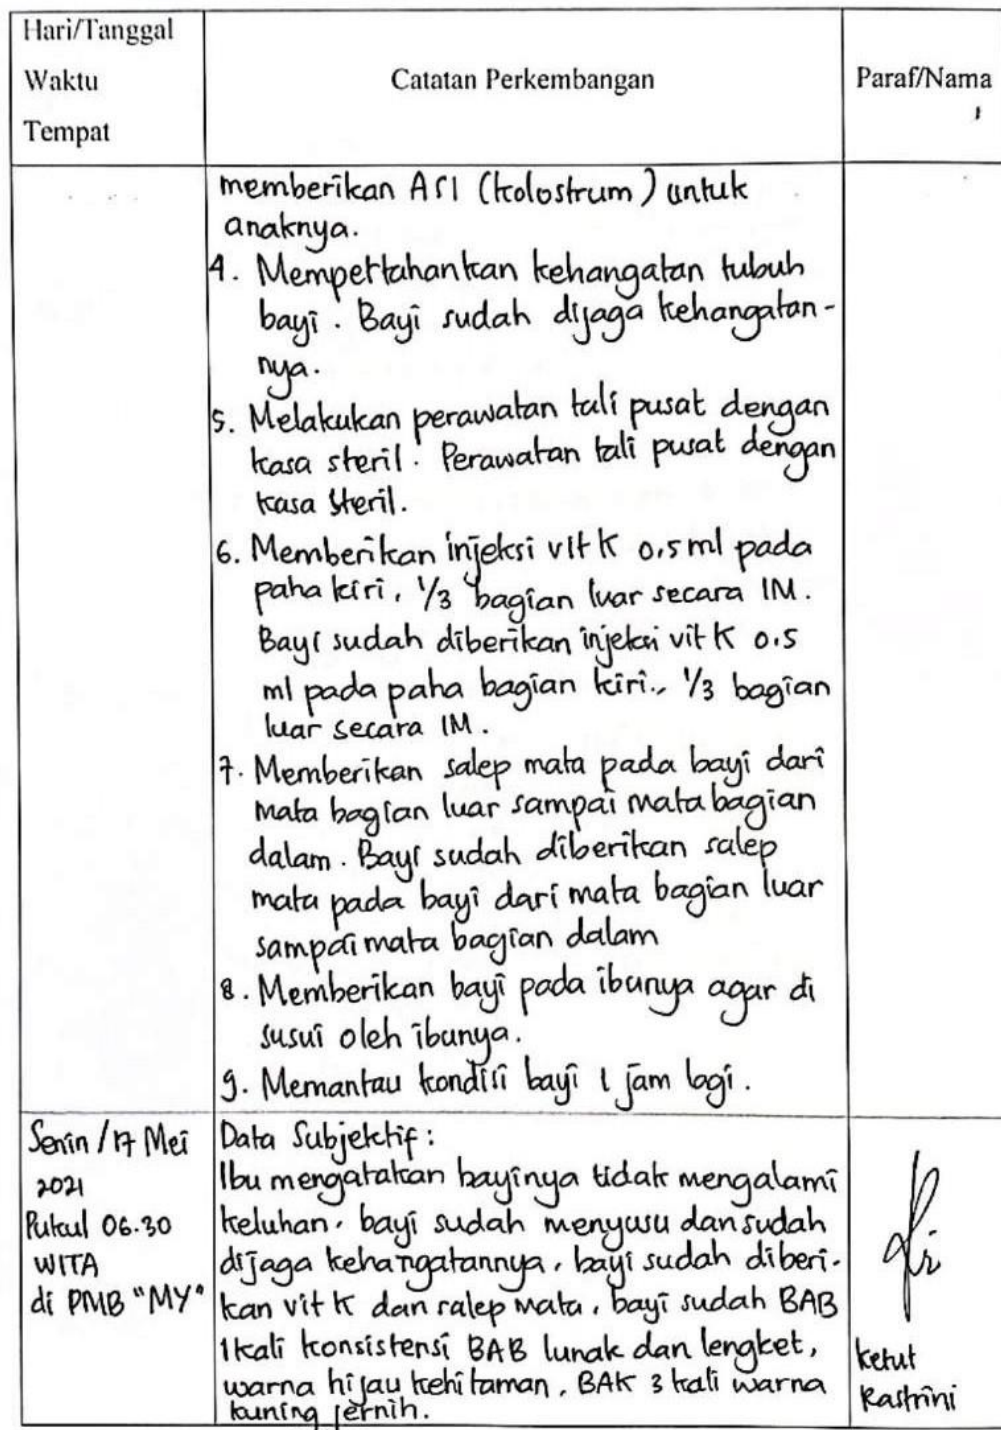 Hari/Tanggal
Waktu
Tempat
Catatan Perkembangan
Paraf/Nama
memberikan ASI (kolostrum) untuk
anaknya.
4. Mempertahankan kehangatan tubuh
bayi. Bayi sudah dijaga kehangatan-
nya.
5. Melakukan perawatan tali pusat dengan
kasa steril. Perawatan tali pusat dengan
kasa steril.
6. Memberikan injeksi vit K 0.5 ml pada
paha kiri, 1/3 bagian luar secara IM.
Bayi sudah diberikan injeksi vit K 0.5
ml pada paha bagian kiri., 1/3 bagian
luar secara IM.
7. Memberikan salep mata pada bayi dari
mata bagian luar sampai mata bagian
dalam. Bayi sudah diberikan salep
mata pada bayi dari mata bagian luar
sampai mata bagian dalam
8. Memberikan bayi pada ibunya agar di
susui oleh ibunya.
9. Memantau kondisi bayi 1 jam lagi.
Senin / 17 Mei
2021
Pukul 06.30
WITA
di PMB "MY"
Data Subjektif:
Ibu mengatakan bayinya tidak mengalami
keluhan, bayi sudah menyusu dan sudah
dijaga kehangatannya, bayi sudah diberi-
kan vit K dan salep mata, bayi sudah BAB
1 kali konsistensi BAB lunak dan lengket,
warna hijau kehitaman, BAK 3 kali warna
kuning jernih.
Ketut
Rastrini